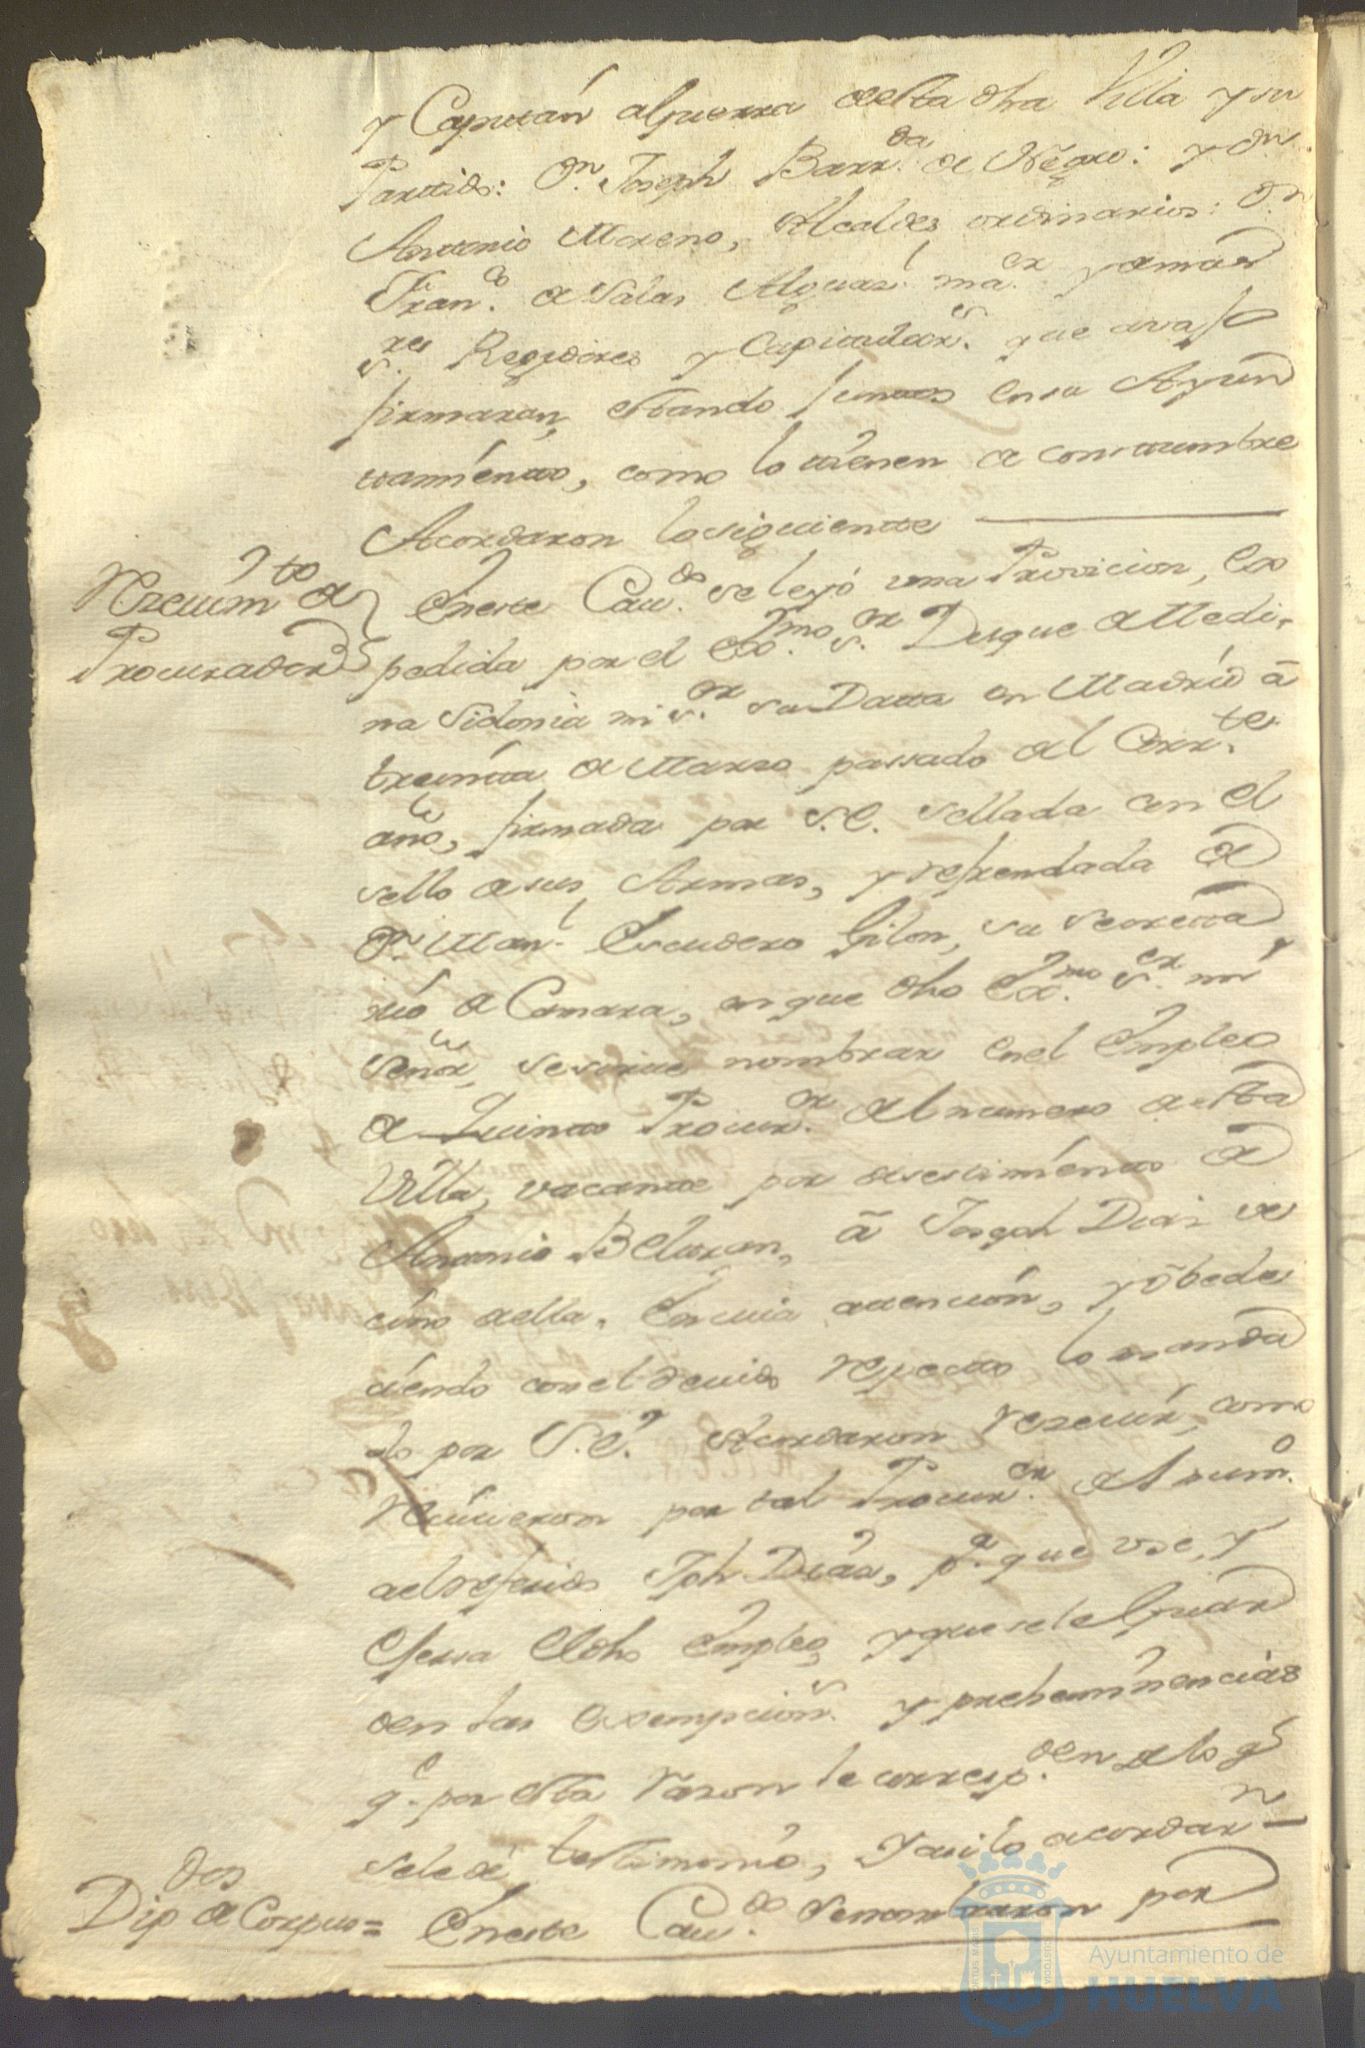 y Capitán alguerra desta dha Villa y su
Partido: Dn. Joseph Barr.da de Negro: y Dn.
Antonio Moreno, Alcaldes ordinarios: Dn.
Fran.co de Salas Alguasl. ma.or y demas
s.res Regidores y Capitulars. que avaxo
firmaran, estando juntos en su Ayun
tamiento, como lo tienen de constumbre
Acordaron lo siguiente
Rezeuim.to de
Procurador
En este Cau.do se leyó una Provicion, ex
pedida por el Exmo. s.or Duque de Medi,
na Sidonia mi s.or su Datta en Madrid à
treinta de Marzo passado del Corr.te
año, firmada por S.E. sellada con el
sello de sus Armas, y refrendada de
Dn. Manl. Escudero Gilon, su secretta
rio de Camara, en que dho Exmo. s.or mi
señor, se sirve nombrar en el Empleo
de Quinto Procur.or del numero desta
Villa, vacante por desestimiento de
Antonio Beltran, à Joseph Diaz ve
cino della. En cuia attencion, y obede
ciendo con el deuido respecto lo manda
do por S.E. Acordaron rezeuir, como
reciuieron por tal Procur.or del num.o
al referido Jph Diaz, p.a que use, y
exersa el dho Empleo, y que se le guar
den las exempcions. y preheminencias
q.e por esta razon le corresp.den de lo q.
se le dé testimonio, y asi lo acordarn.
Dip.dos de Corpus =
En este Cau.do se nombraron por
Ayuntamiento de
HUELVA